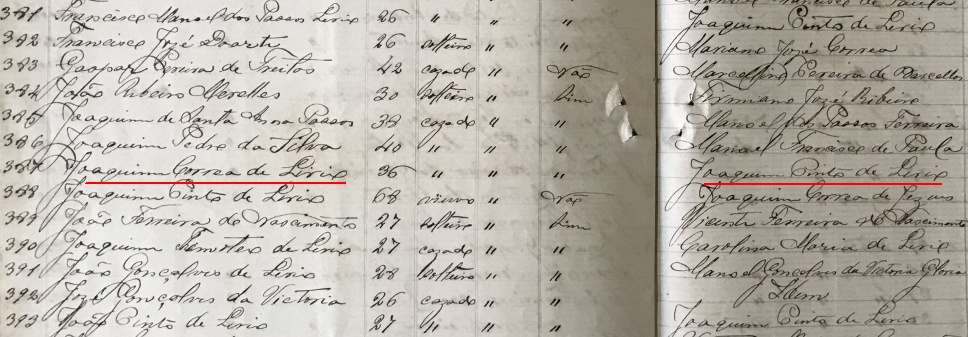 381 Francisco Manoel dos Passos Lirio 26 " " "
Joaquim Pinto de Lirio
382 Francisco Jozé Duarte 26 solteiro " "
Mariano Jozé Correa
383 Gaspar Pereira de Freitas 42 cazado " não
Marcellino Pereira de Barcellos
384 João Ribeiro Merelles 30 solteiro " sim
Firmiano Jozé Ribeiro
385 Joaquim de Santa Anna Passos 38 cazado " "
Manoel dos Passos Ferreira
386 Joaquim Pedro da Silva 40 " " "
Manoel Francisco de Paula
387 Joaquim Correa de Lirio 36 " " "
Joaquim Pinto de Lirio
388 Joaquim Pinto de Lirio 68 viuvo " não
Joaquim Correa de Jezus
389 João Ferreira do Nascimento 27 solteiro " sim
Vicente Ferreira do Nascimento
390 Joaquim Timoteo de Lirio 27 cazado " "
Carolina Maria de Lirio
391 João Gonçalves de Lirio 28 solteiro " "
Manoel Gonçalves da Victoria Gloria
392 Jozé Gonçalves da Victoria 26 cazado " "
Idem
393 João Pinto de Lirio 27 " " "
Joaquim Pinto de Lirio